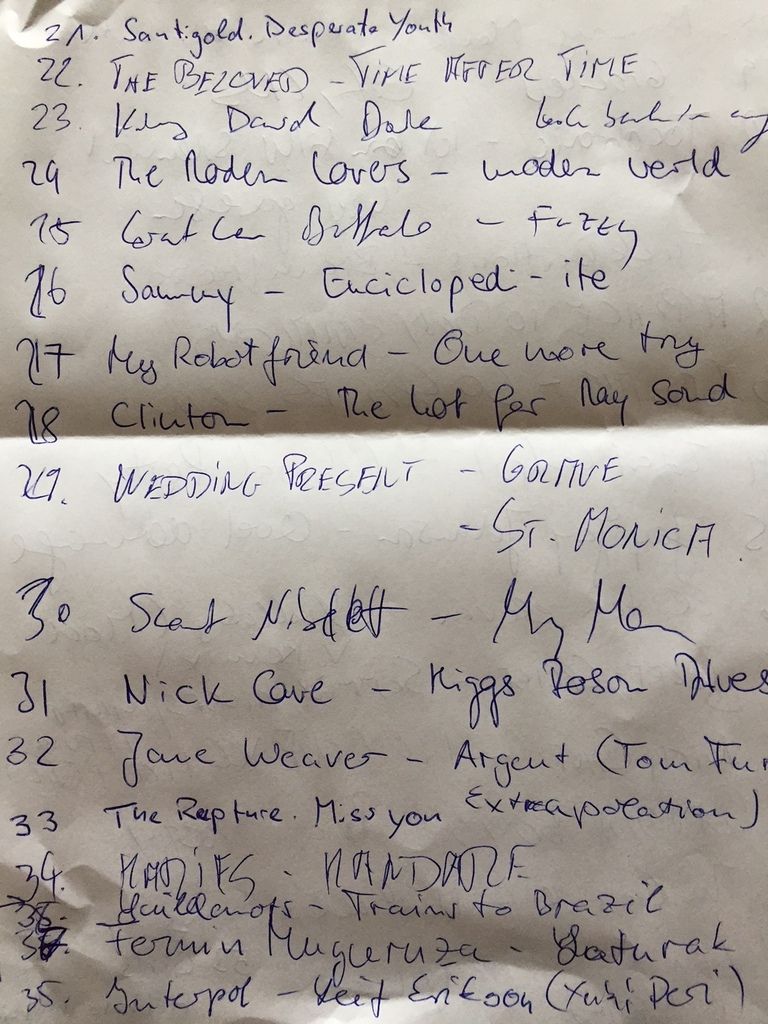 21. Santigold. Desperate Youth
22. THE BELOVED - TIME AFTER TIME
23. King David Dale
24 The Modern Lovers - modern world
25 Buffalo - Fuzzy
26 Sammy - Enciclopedi-ite
27 My Robot friend - One more try
28 Clinton - The hot for May Sound
29. WEDDING PRESENT - GORMVE
- ST. MONICA
30 Scout Niblett - My Man
31 Nick Cave - Higgs Boson Blues
32 Jane Weaver - Argent (Tom Fur
Extrapolation)
33 The Rapture. Miss you
34.
36. Guillemots - Trains to Brazil
37 Fermin Muguruza - Yaturak
35. Interpol - Leif Erikson (Yuki Peri)